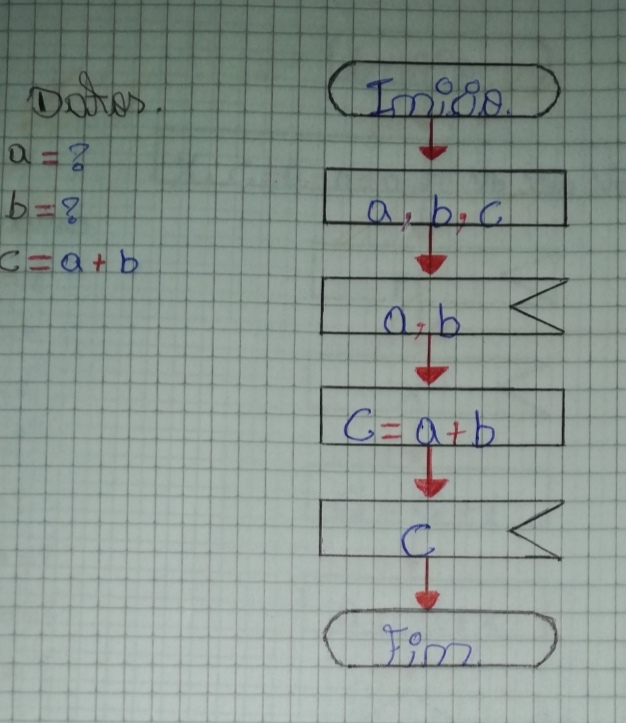 Datos.
a = ?
b = ?
c = a + b
Inicio.
a, b, c
a, b
C = a + b
C
Fin